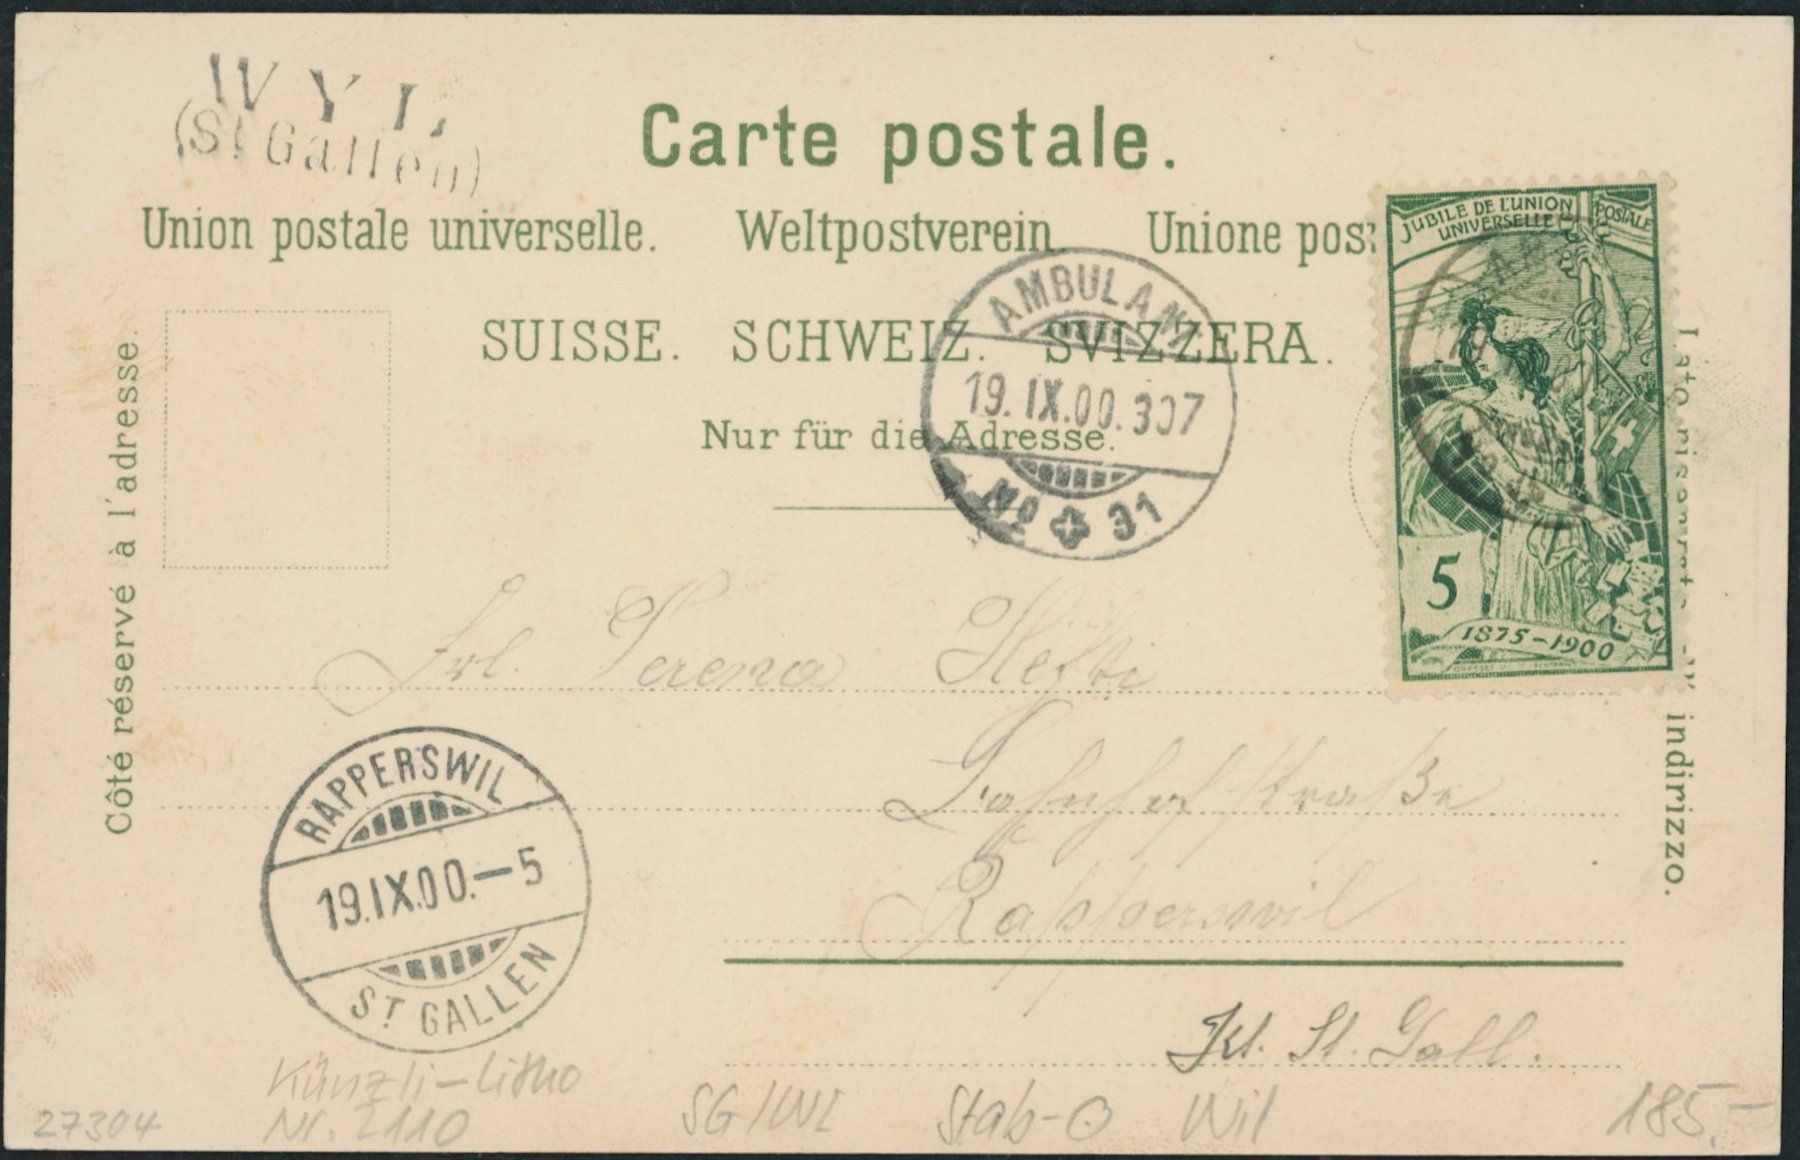 WYL
(St Gallen)
Carte postale.
Union postale universelle. Weltpostverein. Unione pos
SUISSE. SCHWEIZ. SVIZZERA.
Nur für die Adresse.
Côté réservé à l'adresse.
indirizzo.
JUBILÉ DE L'UNION
POSTALE
UNIVERSELLE
5
1875-1900
AMBULANT
19.IX.00.307
No 31
Frl. Serena Hefti
Bahnhofstraße
Rapperswil
Kt. St. Gall.
RAPPERSWIL
19.IX.00.-5
ST GALLEN
Künzli-Litho
Nr. 2110
27304
SG/WL
Stab-O Wil
185.-